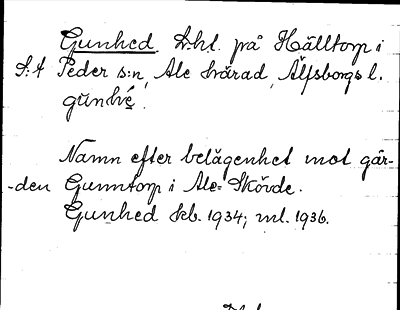 Gunhed. Lht. på Hälltorp i
S:t Peder s:n, Ale härad, Älfsborgs l.
gùnhé.
Namn efter belägenhet mot går-
-den Gunntorp i Ale-Skövde.
Gunhed skb. 1934; ml. 1936.